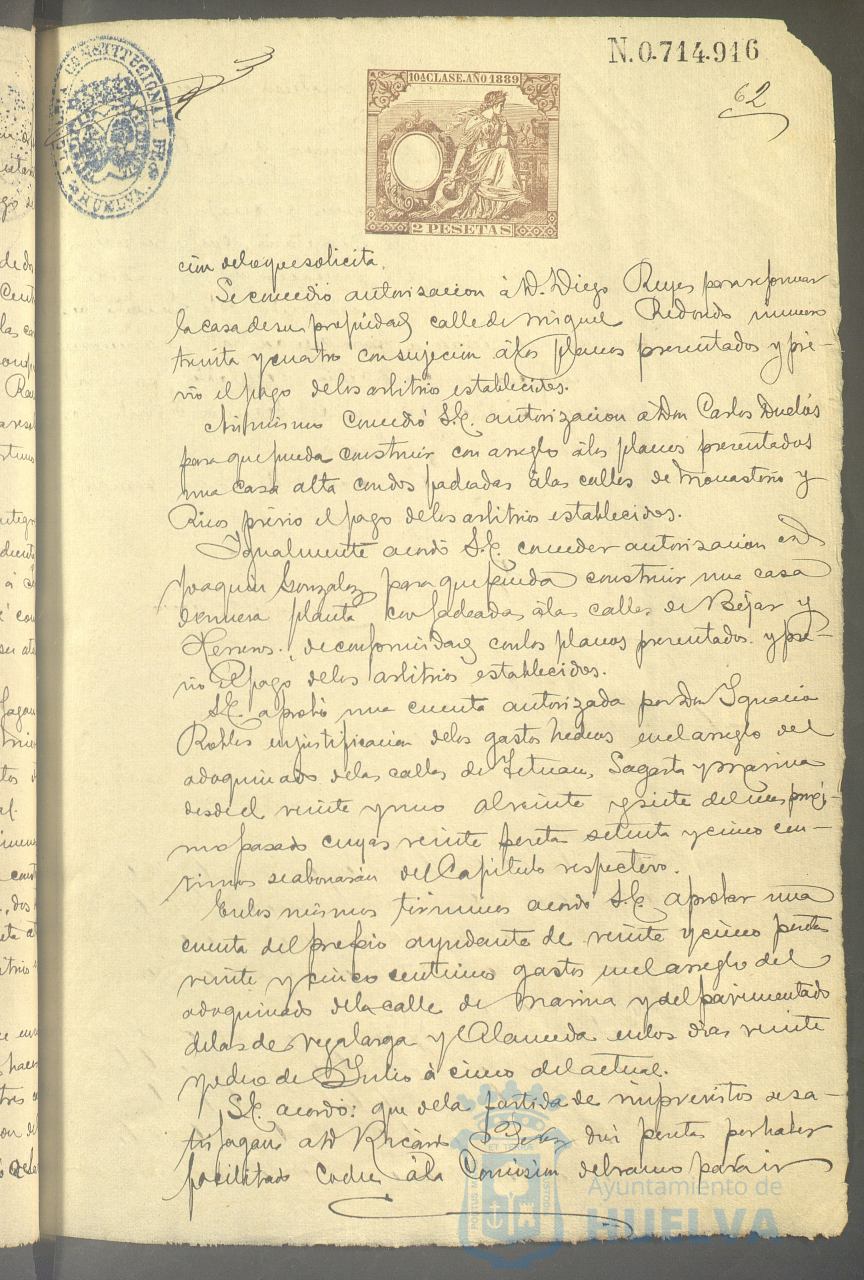 N.0.714.916
62
10ª CLASE. AÑO 1889
2 PESETAS
ALCALDIA CONSTITUCIONAL DE HUELVA
cion de lo que solicita.
Se concedio autorizacion á D. Diego Reyes para reformar
la casa de su propiedad calle de Miguel Redondo número
treinta y cuatro con sujecion á los planos presentados y pré-
vio el pago de los arbitrios establecidos.
Asimismo concedió S.E. autorizacion á Don Carlos
para que pueda construir con arreglo á los planos presentados
una casa alta con dos fachadas á las calles de Monasterio y
Ricos prévio el pago de los arbitrios establecidos.
Igualmente acordó S.E. conceder autorizacion
Joaquin Gonzalez para que pueda construir una casa
de nueva planta con fachadas á las calles de Béjar y
Herreros, de conformidad con los planos presentados y pré-
vio el pago de los arbitrios establecidos.
S.E. aprobó una cuenta autorizada por Don Ignacio
Robles en justificacion de los gastos hechos en el arreglo del
adoquinado de las calles de Tetuan, Sagasta y Marina
desde el veinte y uno al veinte y siete del mes próxi-
mo pasado cuyas veinte pesetas setenta y cinco cen-
timos se abonarán del Capitulo respectivo.
En los mismos términos acordó S.E. aprobar una
cuenta del propio ayudante de veinte y cinco pesetas
veinte y cinco centimos gastos en el arreglo del
adoquinado de la calle de Marina y del pavimentado
de las de Vegalarga y Alameda en los dias veinte
y ocho de Julio á cinco del actual.
S.E. acordó: que de la partida de imprevistos se sa-
tisfagan á D. Ricardo diez pesetas por haber
facilitado coches á la Comision del ramo para ir
Ayuntamiento de
HUELVA